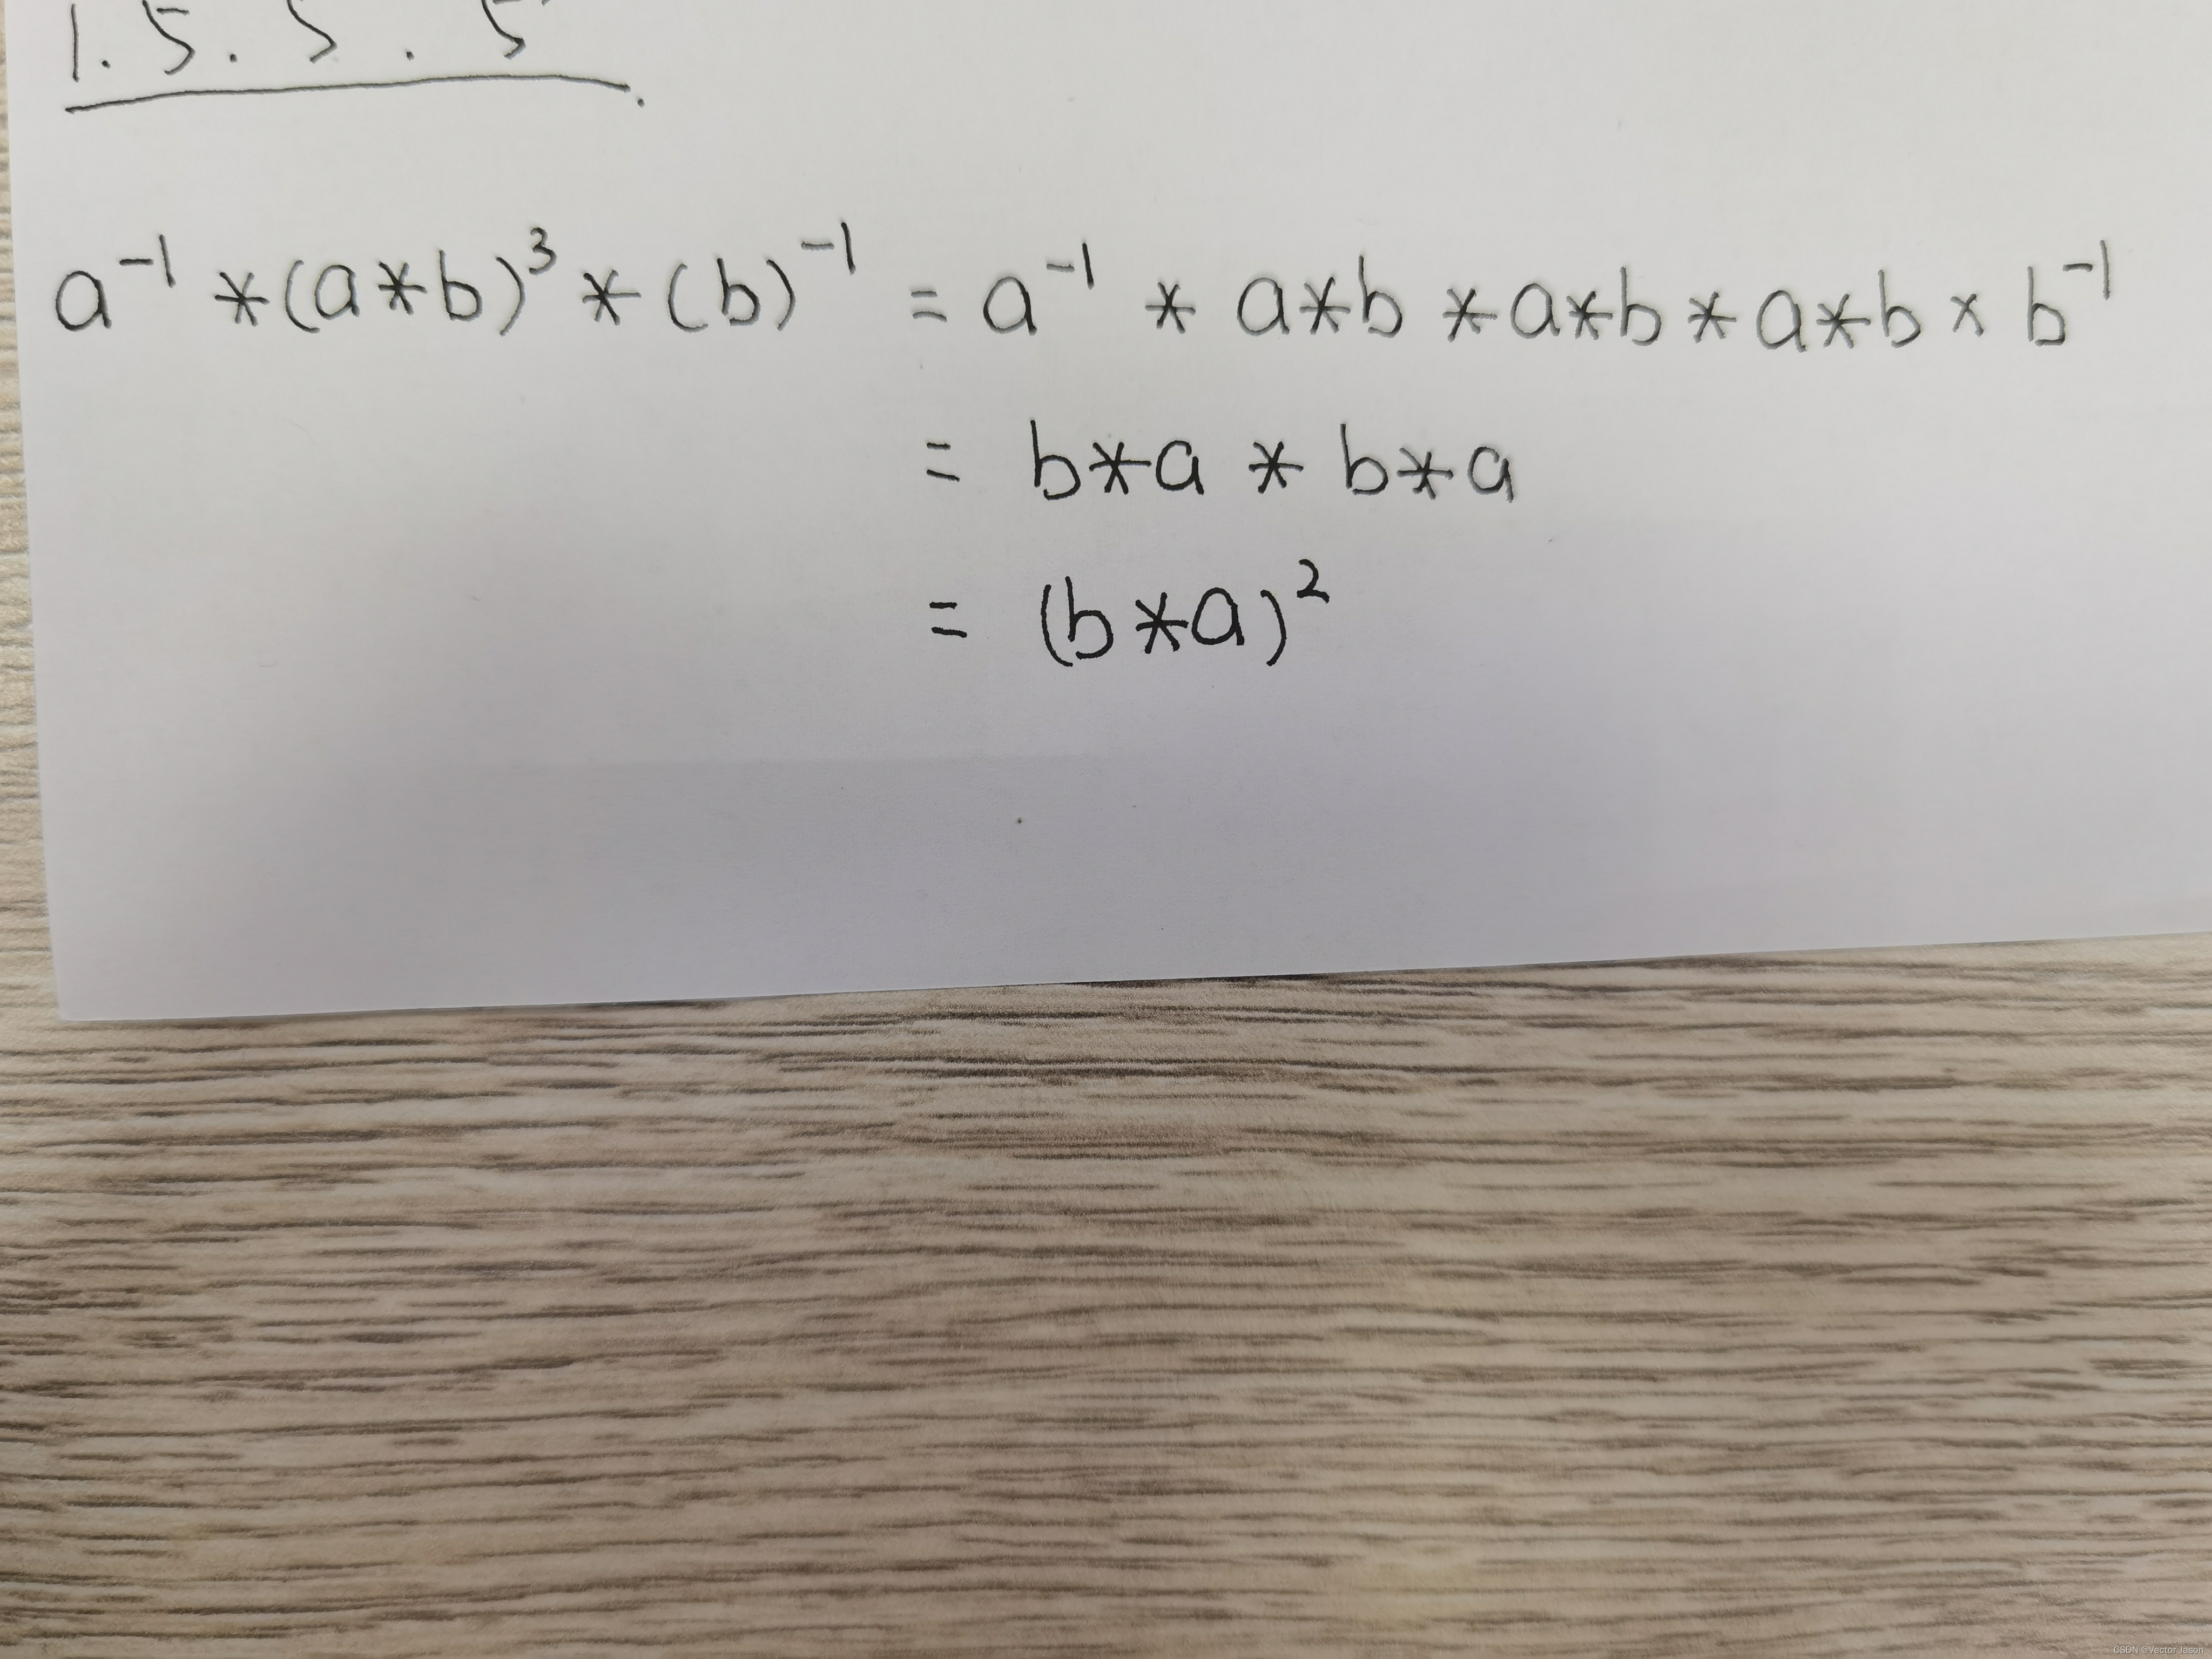 1. 5. 5. 5
a⁻¹ * (a*b)³ * (b)⁻¹ = a⁻¹ * a*b * a*b * a*b × b⁻¹
= b*a * b*a
= (b*a)²
CSDN @Vector Jason